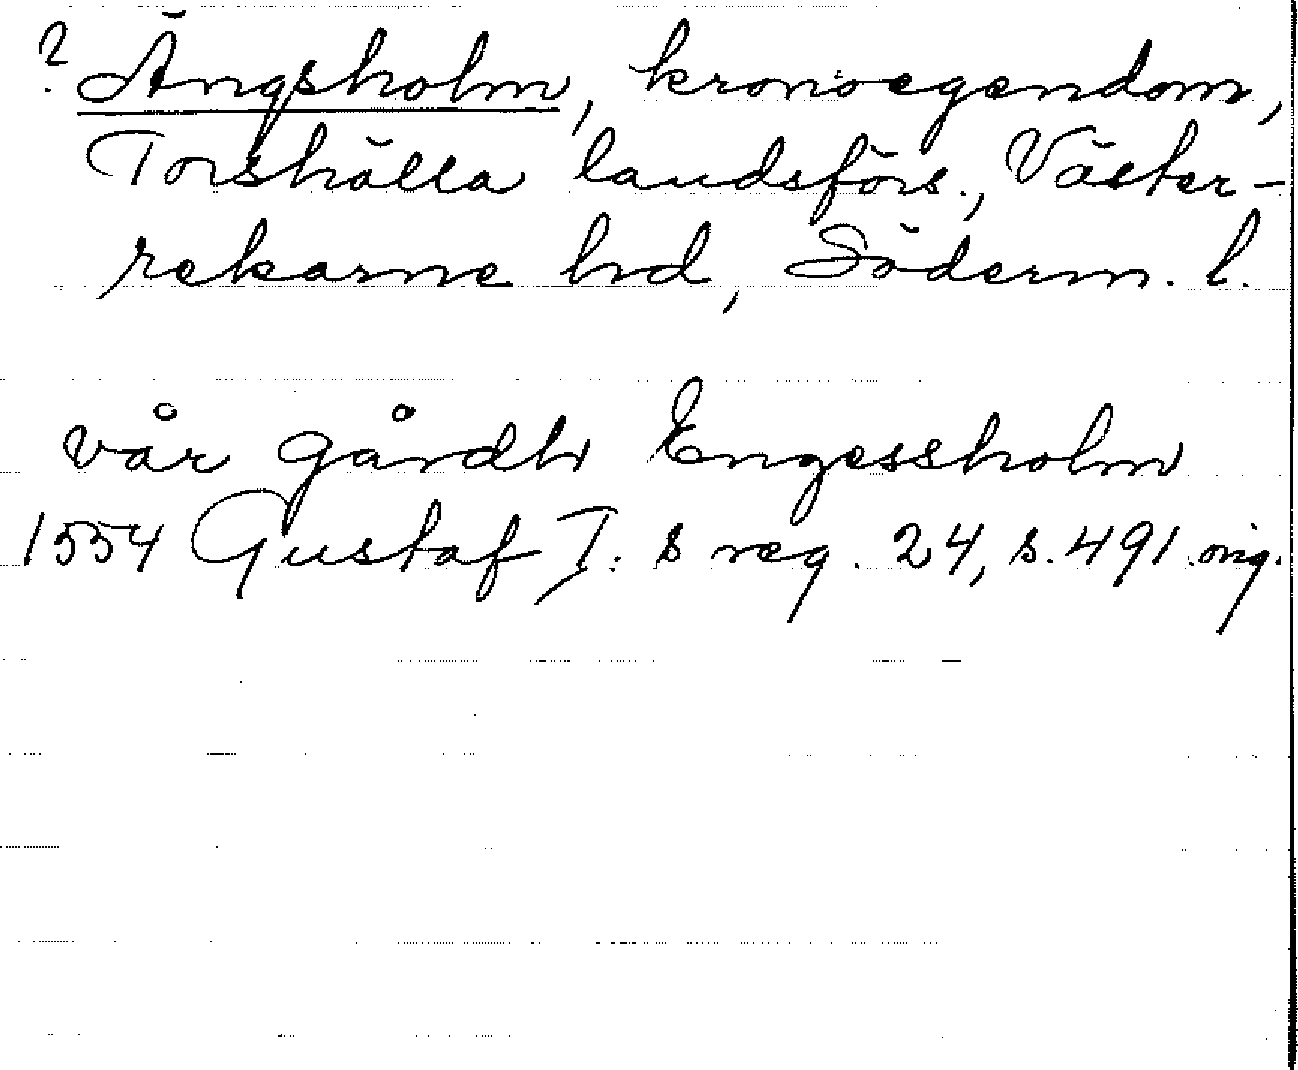 ? Ängsholm, kronoegendom,
Torshälla landsförs., Väster-
rekarne hd, Söderm. l.
vår gårdh Engessholm
1554 Gustaf I. s reg. 24, s. 491 orig.